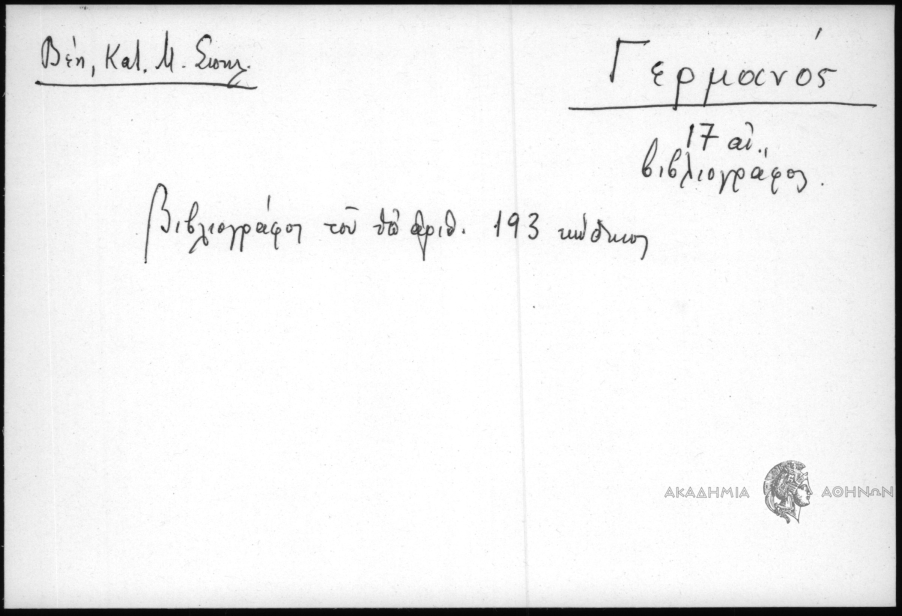 Βέη, Κατ. Μ.
Γερμανός
17 αἰ.,
βιβλιογράφος.
Βιβλιογράφος τοῦ ὑπ' ἀριθ. 193 κώδικος
ΑΚΑΔΗΜΙΑ ΑΘΗΝΩΝ